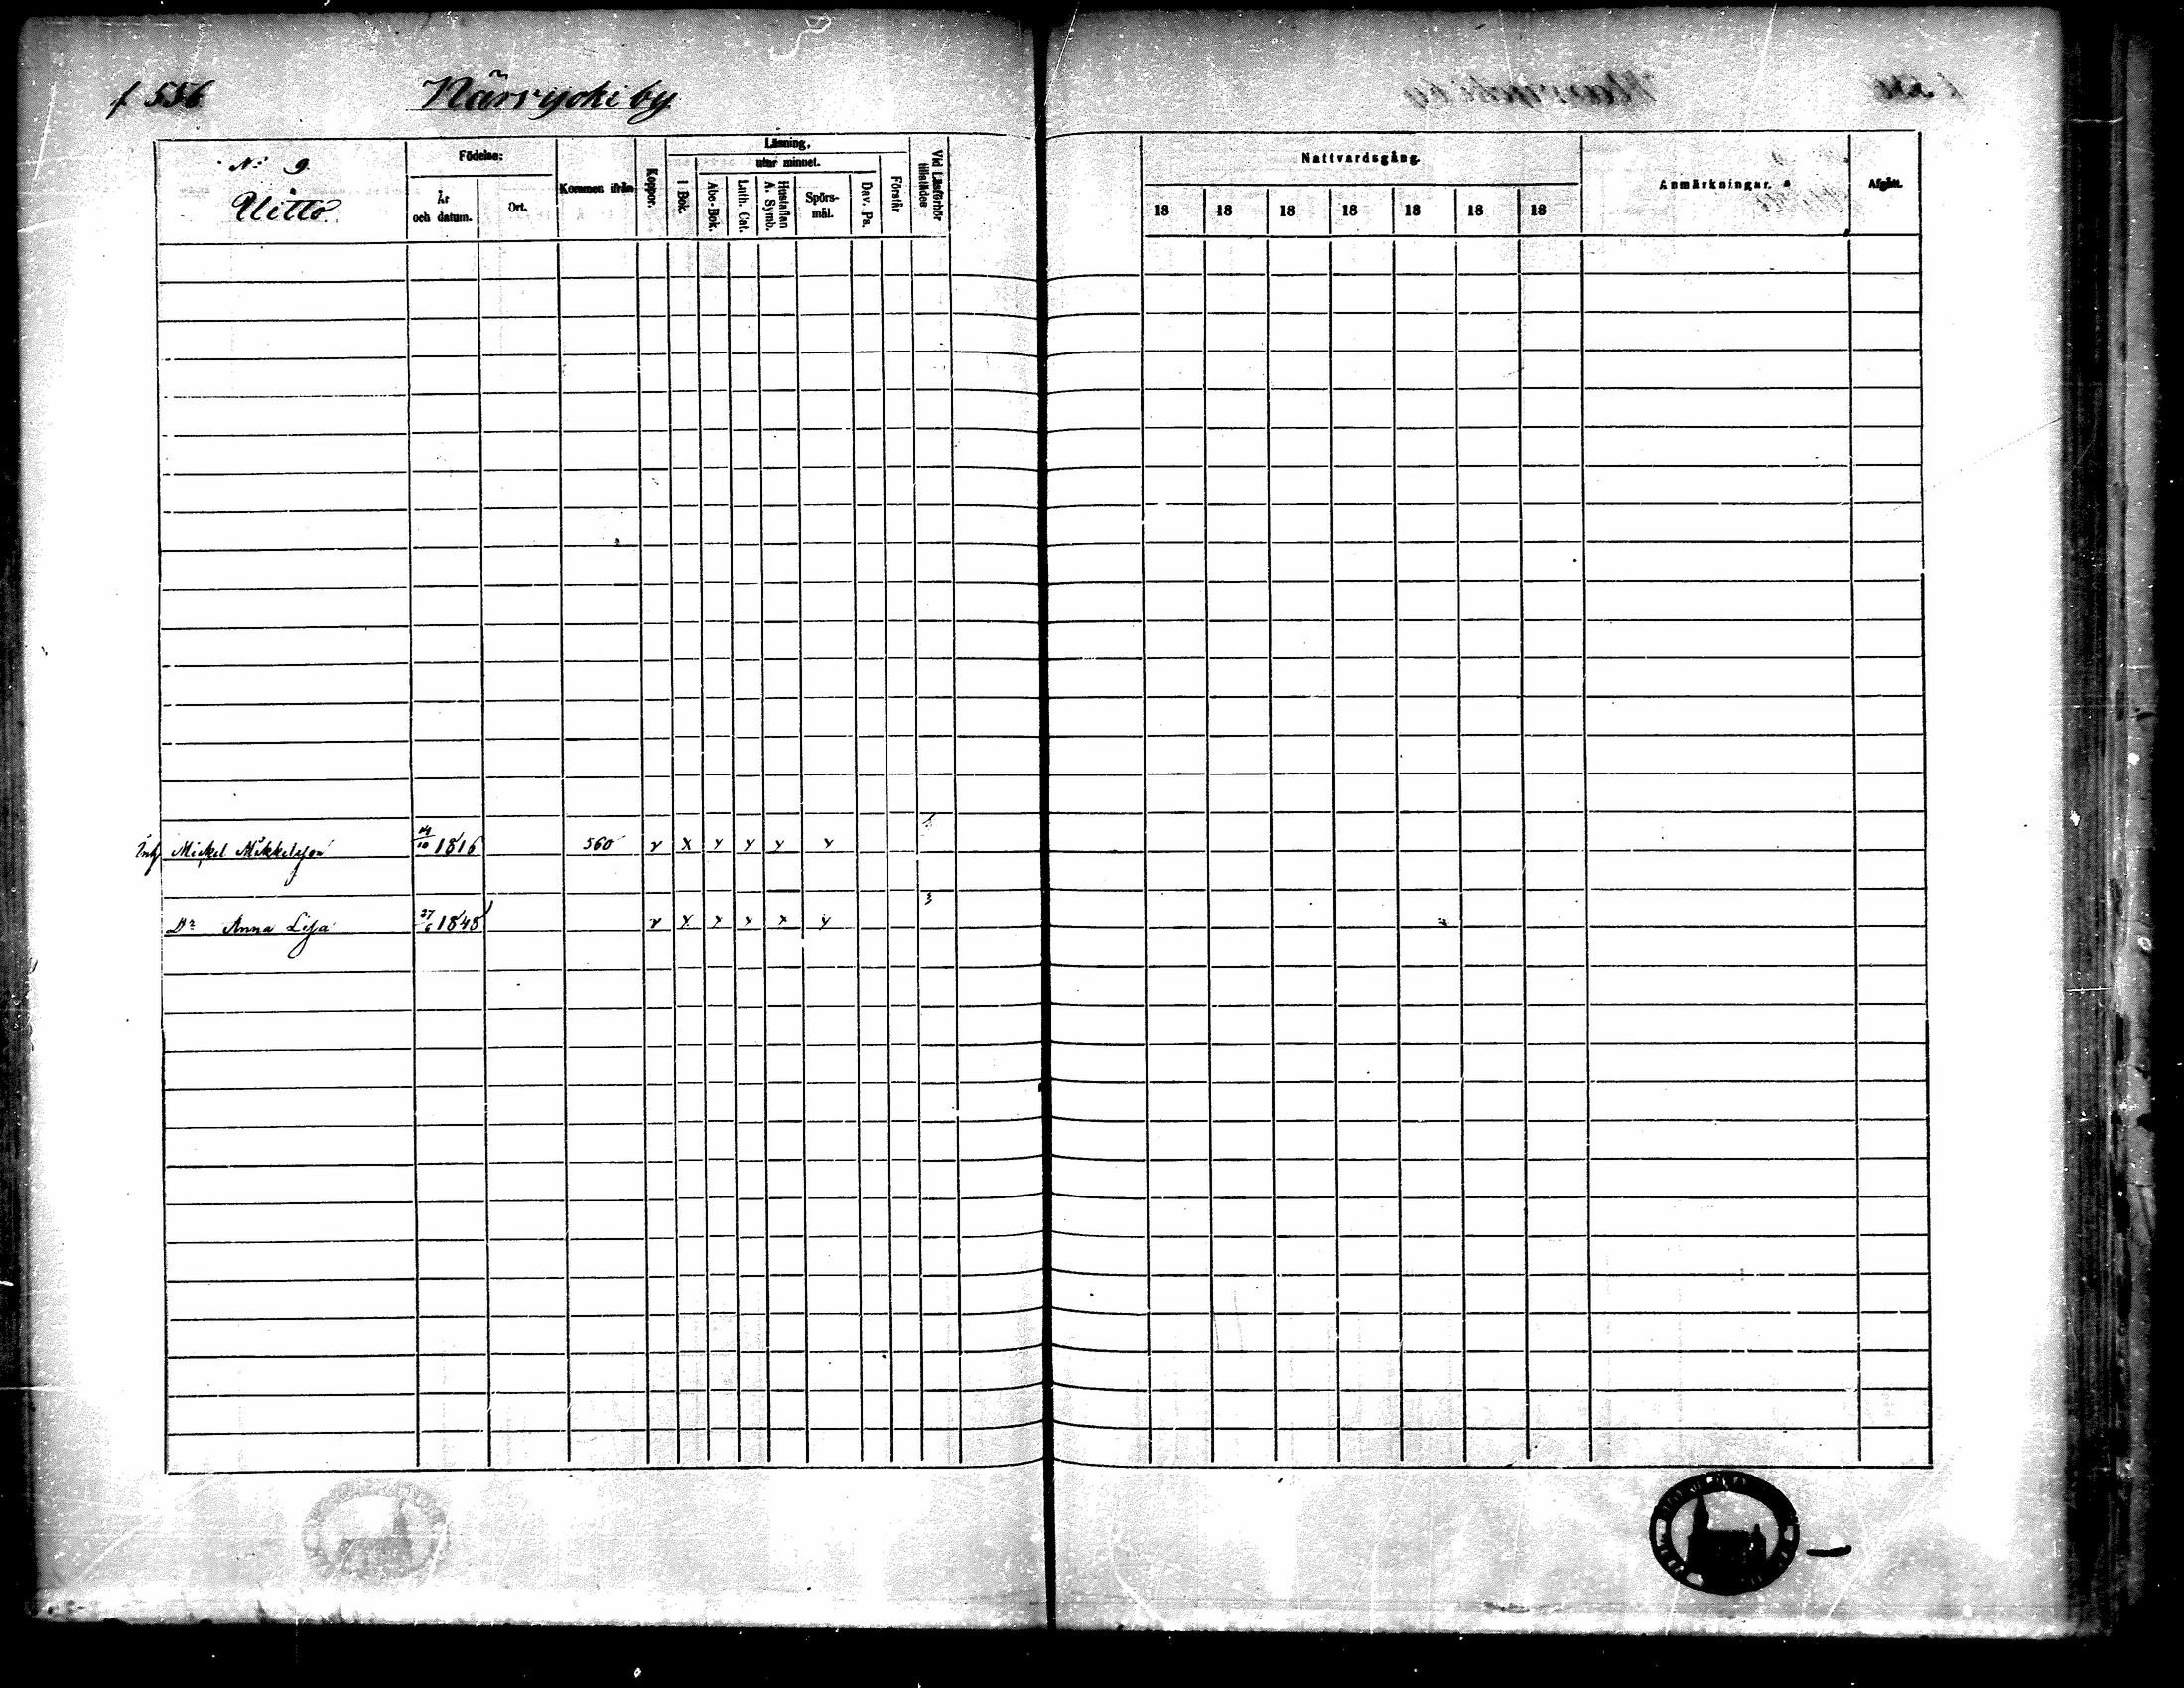 f 556 Närvijoki by
No 9.
Uitto.
Födelse:
År och datum.
Ort.
Kommen ifrån
Koppor.
Läsning,
utur minnet.
I Bok.
Abc-Bok.
Luth. Cat.
Hustaflan A. Symb.
Spörs-mål.
Dav. Ps.
Förstår
Vid Läsförhör tillstädes
Nattvardsgång.
18 18 18 18 18 18 18
Anmärkningar.
Afgått.
Inh Mickel Mikkelsson 14/10 1816 560 v x x x x x
3
Dr Anna Lisa 27/6 1848 v x x x x x